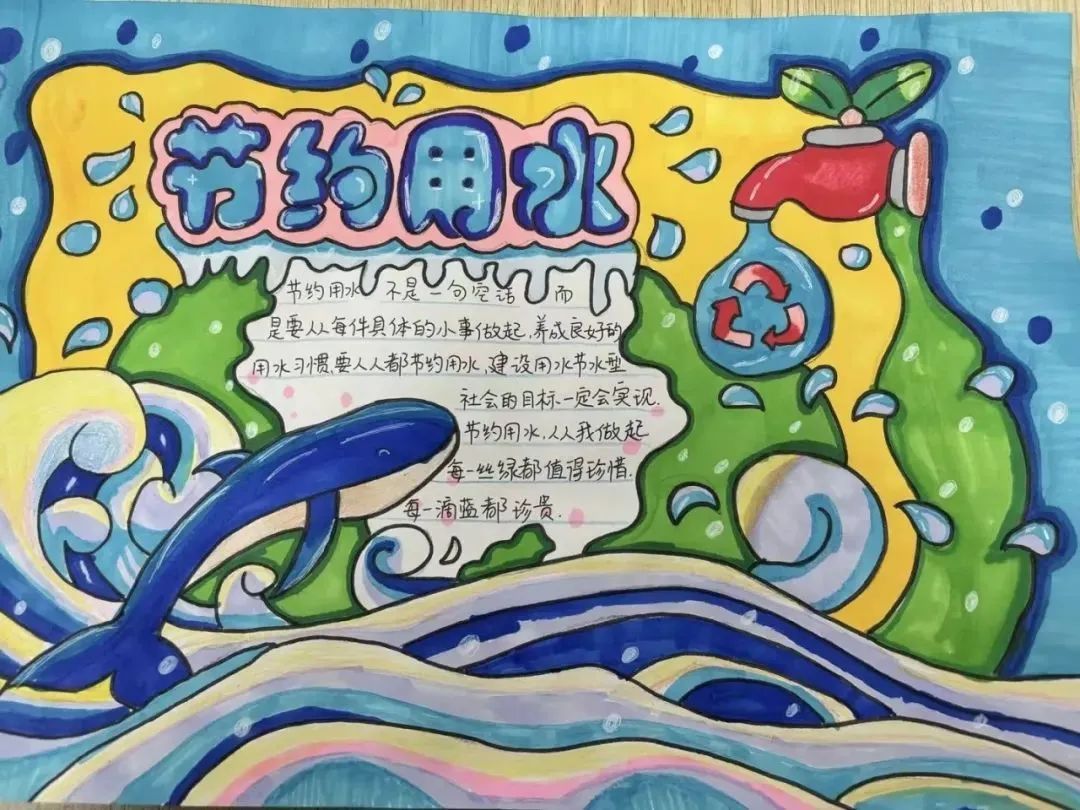 节约用水
节约用水 不是一句空话 而
是要从每件具体的小事做起,养成良好的
用水习惯,要人人都节约用水,建设用水节水型
社会的目标一定会实现.
节约用水,从我做起
每一丝绿都值得珍惜.
每一滴蓝都珍贵.